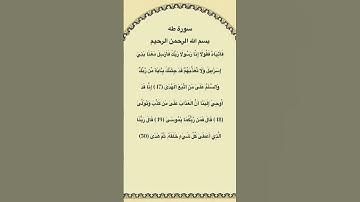 سورة طه
بسم الله الرحمن الرحيم
فَأْتِيَاهُ فَقُولَا إِنَّا رَسُولَا رَبِّكَ فَأَرْسِلْ مَعَنَا بَنِي
إِسْرَائِيلَ وَلَا تُعَذِّبْهُمْ قَدْ جِئْنَاكَ بِآيَةٍ مِّن رَّبِّكَ
وَالسَّلَامُ عَلَىٰ مَنِ اتَّبَعَ الْهُدَىٰ (47) إِنَّا قَدْ
أُوحِيَ إِلَيْنَا أَنَّ الْعَذَابَ عَلَىٰ مَن كَذَّبَ وَتَوَلَّىٰ
(48) قَالَ فَمَن رَّبُّكُمَا يَا مُوسَىٰ (49) قَالَ رَبُّنَا
الَّذِي أَعْطَىٰ كُلَّ شَيْءٍ خَلْقَهُ ثُمَّ هَدَىٰ (50)